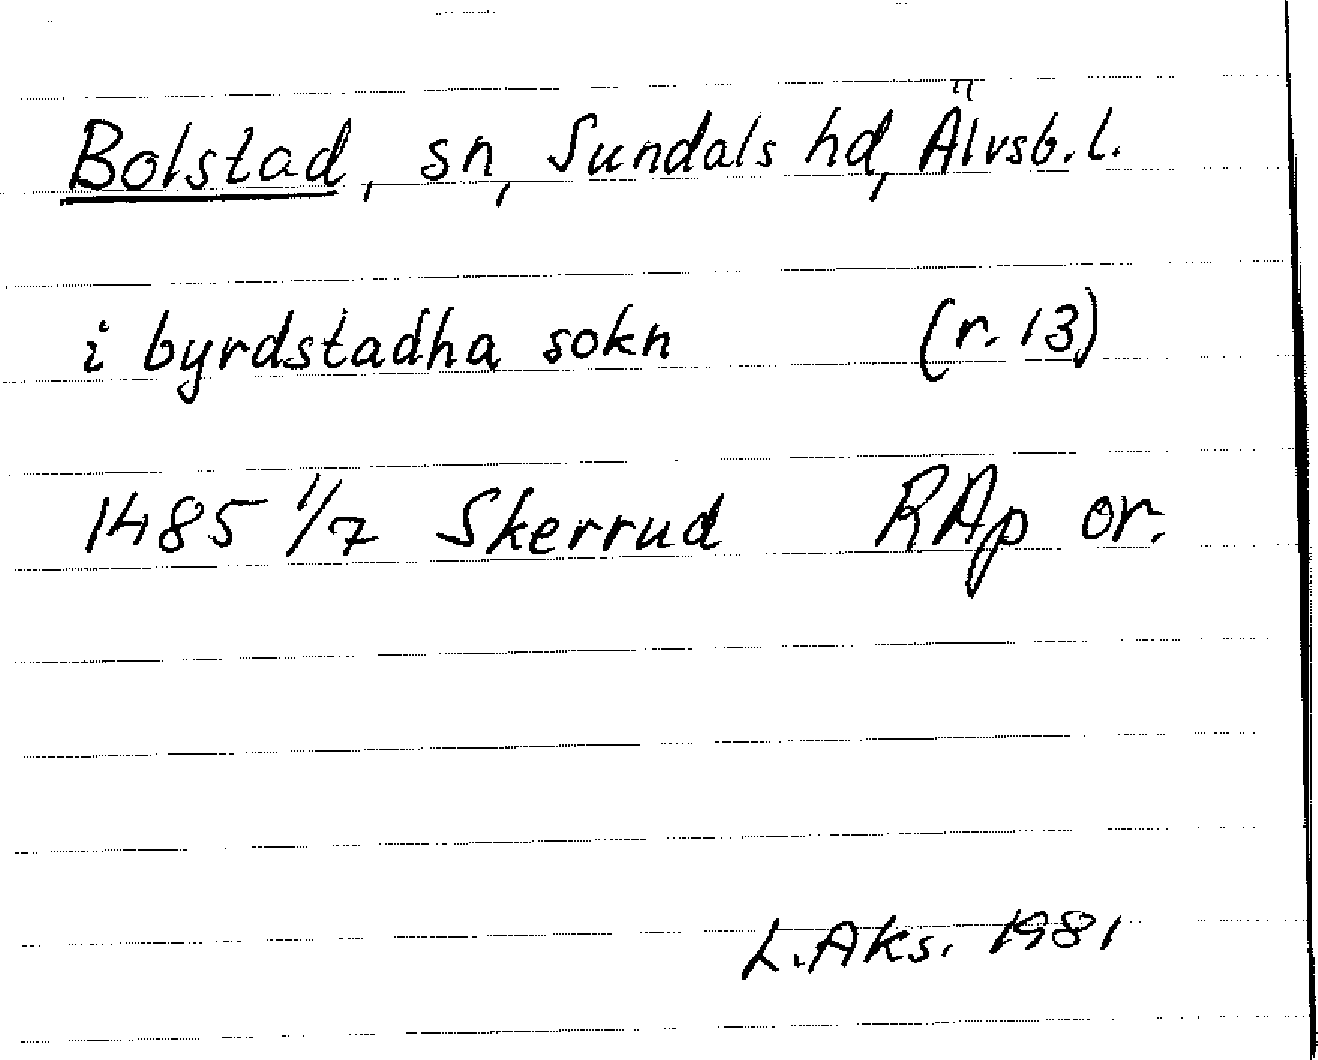 Bolstad, sn, Sundals hd, Älvsb. l.
i byrdstadha sokn (r. 13)
1485 1/7 Skerrud RAp or.
L. Aks. 1981